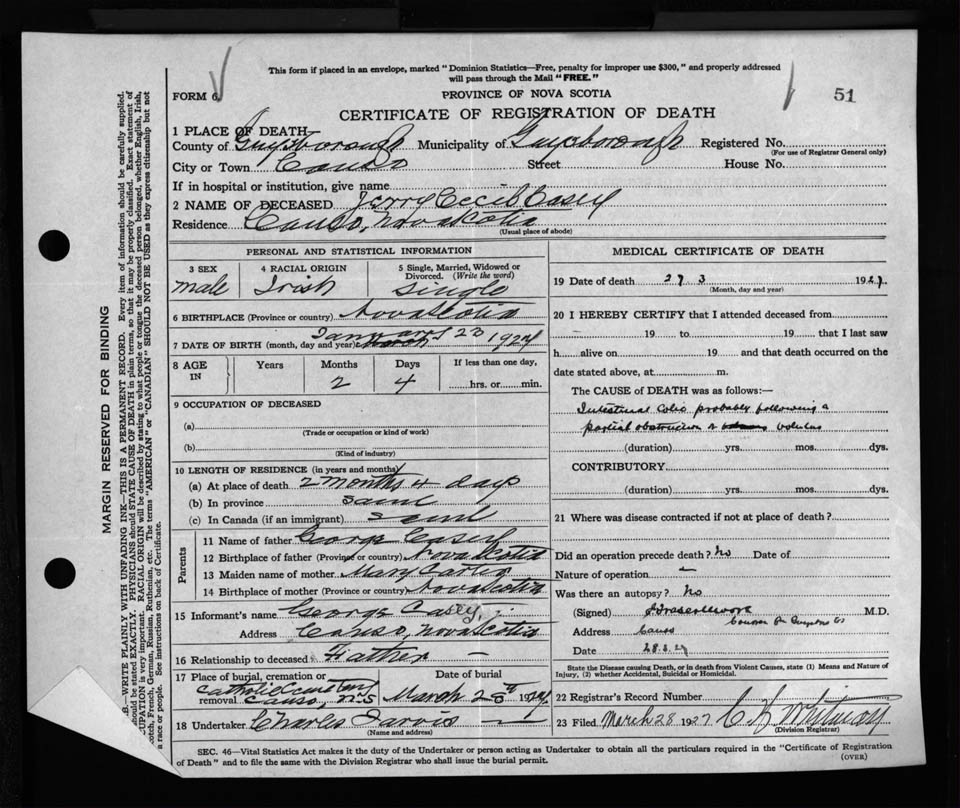 This form if placed in an envelope, marked "Dominion Statistics—Free, penalty for improper use $300," and properly addressed
will pass through the Mail "FREE."
FORM 6
PROVINCE OF NOVA SCOTIA
51
CERTIFICATE OF REGISTRATION OF DEATH
1 PLACE OF DEATH
County of Guysborough Municipality of Guysborough Registered No.
(For use of Registrar General only)
City or Town Canso Street House No.
If in hospital or institution, give name
2 NAME OF DECEASED Jerry Cecil Casey
Residence Canso, Nova Scotia
(Usual place of abode)
MARGIN RESERVED FOR BINDING
N.B.—WRITE PLAINLY WITH UNFADING INK—THIS IS A PERMANENT RECORD. Every item of information should be carefully supplied.
should be stated EXACTLY. PHYSICIANS should STATE CAUSE OF DEATH in plain terms, so that it may be properly classified. Exact statement of
OCCUPATION is very important. RACIAL ORIGIN will be described by stating to what people or tongue the deceased person belonged, whether English, Irish,
Scotch, French, German, Russian, Ruthenian, etc. The terms "AMERICAN" or "CANADIAN" SHOULD NOT BE USED as they express citizenship but not
a race or people. See instructions on back of Certificate.
PERSONAL AND STATISTICAL INFORMATION
3 SEX
male
4 RACIAL ORIGIN
Irish
5 Single, Married, Widowed or
Divorced. (Write the word)
Single
6 BIRTHPLACE (Province or country) Nova Scotia
January 23
7 DATE OF BIRTH (month, day and year) March 1927
8 AGE
IN
Years Months Days If less than one day,
2 4 hrs. or min.
9 OCCUPATION OF DECEASED
(a)
(Trade or occupation or kind of work)
(b)
(Kind of industry)
10 LENGTH OF RESIDENCE (in years and months)
(a) At place of death 2 months 4 days
(b) In province same
(c) In Canada (if an immigrant) same
Parents
11 Name of father George Casey
12 Birthplace of father (Province or country) Nova Scotia
13 Maiden name of mother Mary
14 Birthplace of mother (Province or country) Nova Scotia
15 Informant's name George Casey
Address Canso, Nova Scotia
16 Relationship to deceased Father —
17 Place of burial, cremation or
removal Catholic Cemetery
Canso, N.S
Date of burial
March 28th 1927
18 Undertaker Charles Jarvis
(Name and address)
MEDICAL CERTIFICATE OF DEATH
19 Date of death 27. 3 1927
(Month, day and year)
20 I HEREBY CERTIFY that I attended deceased from
19 to 19 that I last saw
h alive on 19 and that death occurred on the
date stated above, at m.
The CAUSE of DEATH was as follows:—
Intestinal Colic probably following a
partial obstruction or volvulus
(duration) yrs. mos. dys.
CONTRIBUTORY
(duration) yrs. mos. dys.
21 Where was disease contracted if not at place of death?
Did an operation precede death? No Date of
Nature of operation —
Was there an autopsy? No
(Signed) M.D.
Coroner for Guysboro Co
Address Canso
Date 28.3.27
State the Disease causing Death, or in death from Violent Causes, state (1) Means and Nature of
Injury, (2) whether Accidental, Suicidal or Homicidal.
22 Registrar's Record Number
23 Filed March 28 1927 C H Whitman
(Division Registrar)
SEC. 46—Vital Statistics Act makes it the duty of the Undertaker or person acting as Undertaker to obtain all the particulars required in the "Certificate of Registration
of Death" and to file the same with the Division Registrar who shall issue the burial permit.
(OVER)